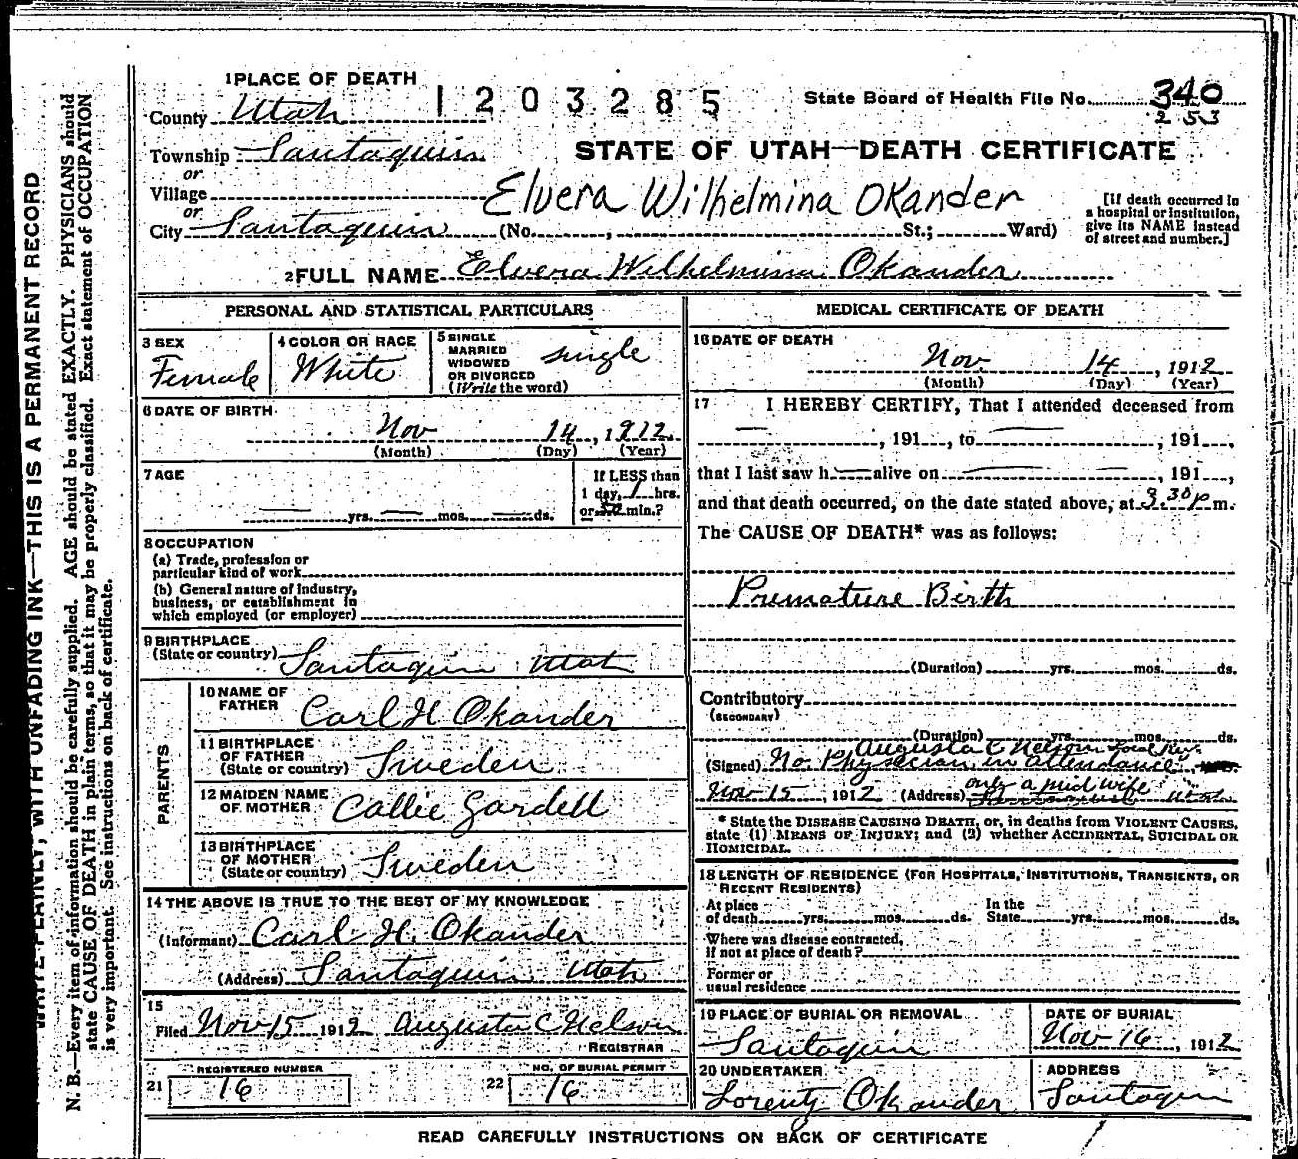 1 PLACE OF DEATH
County Utah
1203285
State Board of Health File No. 340
253
Township Santaquin
or
STATE OF UTAH—DEATH CERTIFICATE
Village
or
Elvera Wilhelmina Okander
[If death occurred in
a hospital or institution,
give its NAME instead
of street and number.]
City Santaquin (No. , St.; Ward)
2 FULL NAME Elvera Wilhelmina Okander
PERSONAL AND STATISTICAL PARTICULARS
3 SEX
Female
4 COLOR OR RACE
White
5 SINGLE
MARRIED
WIDOWED
OR DIVORCED
(Write the word)
single
6 DATE OF BIRTH
Nov 14, 1912
(Month) (Day) (Year)
7 AGE
yrs. mos. ds.
If LESS than
1 day, 1 hrs.
or min.?
8 OCCUPATION
(a) Trade, profession or
particular kind of work
(b) General nature of industry,
business, or establishment in
which employed (or employer)
9 BIRTHPLACE
(State or country) Santaquin Utah
PARENTS
10 NAME OF
FATHER
Carl H Okander
11 BIRTHPLACE
OF FATHER
(State or country) Sweden
12 MAIDEN NAME
OF MOTHER
Callie Gardell
13 BIRTHPLACE
OF MOTHER
(State or country) Sweden
14 THE ABOVE IS TRUE TO THE BEST OF MY KNOWLEDGE
(Informant) Carl H. Okander
(Address) Santaquin Utah
15
Filed Nov 15 1912 Augusta C Nelson
REGISTRAR
21
REGISTERED NUMBER
16
22
NO. OF BURIAL PERMIT
16
MEDICAL CERTIFICATE OF DEATH
16 DATE OF DEATH
Nov. 14, 1912
(Month) (Day) (Year)
17 I HEREBY CERTIFY, That I attended deceased from
—, 191 , to —, 191 ,
that I last saw h— alive on —, 191 ,
and that death occurred, on the date stated above, at 3.30 p m.
The CAUSE OF DEATH* was as follows:
Premature Birth
(Duration) yrs. mos. ds.
Contributory
(SECONDARY)
(Duration) yrs. mos. ds.
Augusta C Nelson Local Reg.
(Signed) No Physician in attendance
only a mid wife
Nov 15, 1912 (Address) Santaquin Utah
* State the DISEASE CAUSING DEATH, or, in deaths from VIOLENT CAUSES,
state (1) MEANS OF INJURY; and (2) whether ACCIDENTAL, SUICIDAL OR
HOMICIDAL.
18 LENGTH OF RESIDENCE (FOR HOSPITALS, INSTITUTIONS, TRANSIENTS, OR
RECENT RESIDENTS)
At place
of death yrs. mos. ds.
In the
State yrs. mos. ds.
Where was disease contracted,
if not at place of death?
Former or
usual residence
19 PLACE OF BURIAL OR REMOVAL
Santaquin
DATE OF BURIAL
Nov 16, 1912
20 UNDERTAKER
Lorentz Okander
ADDRESS
Santaquin
READ CAREFULLY INSTRUCTIONS ON BACK OF CERTIFICATE
WRITE PLAINLY, WITH UNFADING INK—THIS IS A PERMANENT RECORD
N. B.—Every item of information should be carefully supplied. AGE should be stated EXACTLY. PHYSICIANS should
state CAUSE OF DEATH in plain terms, so that it may be properly classified. Exact statement of OCCUPATION
is very important. See instructions on back of certificate.